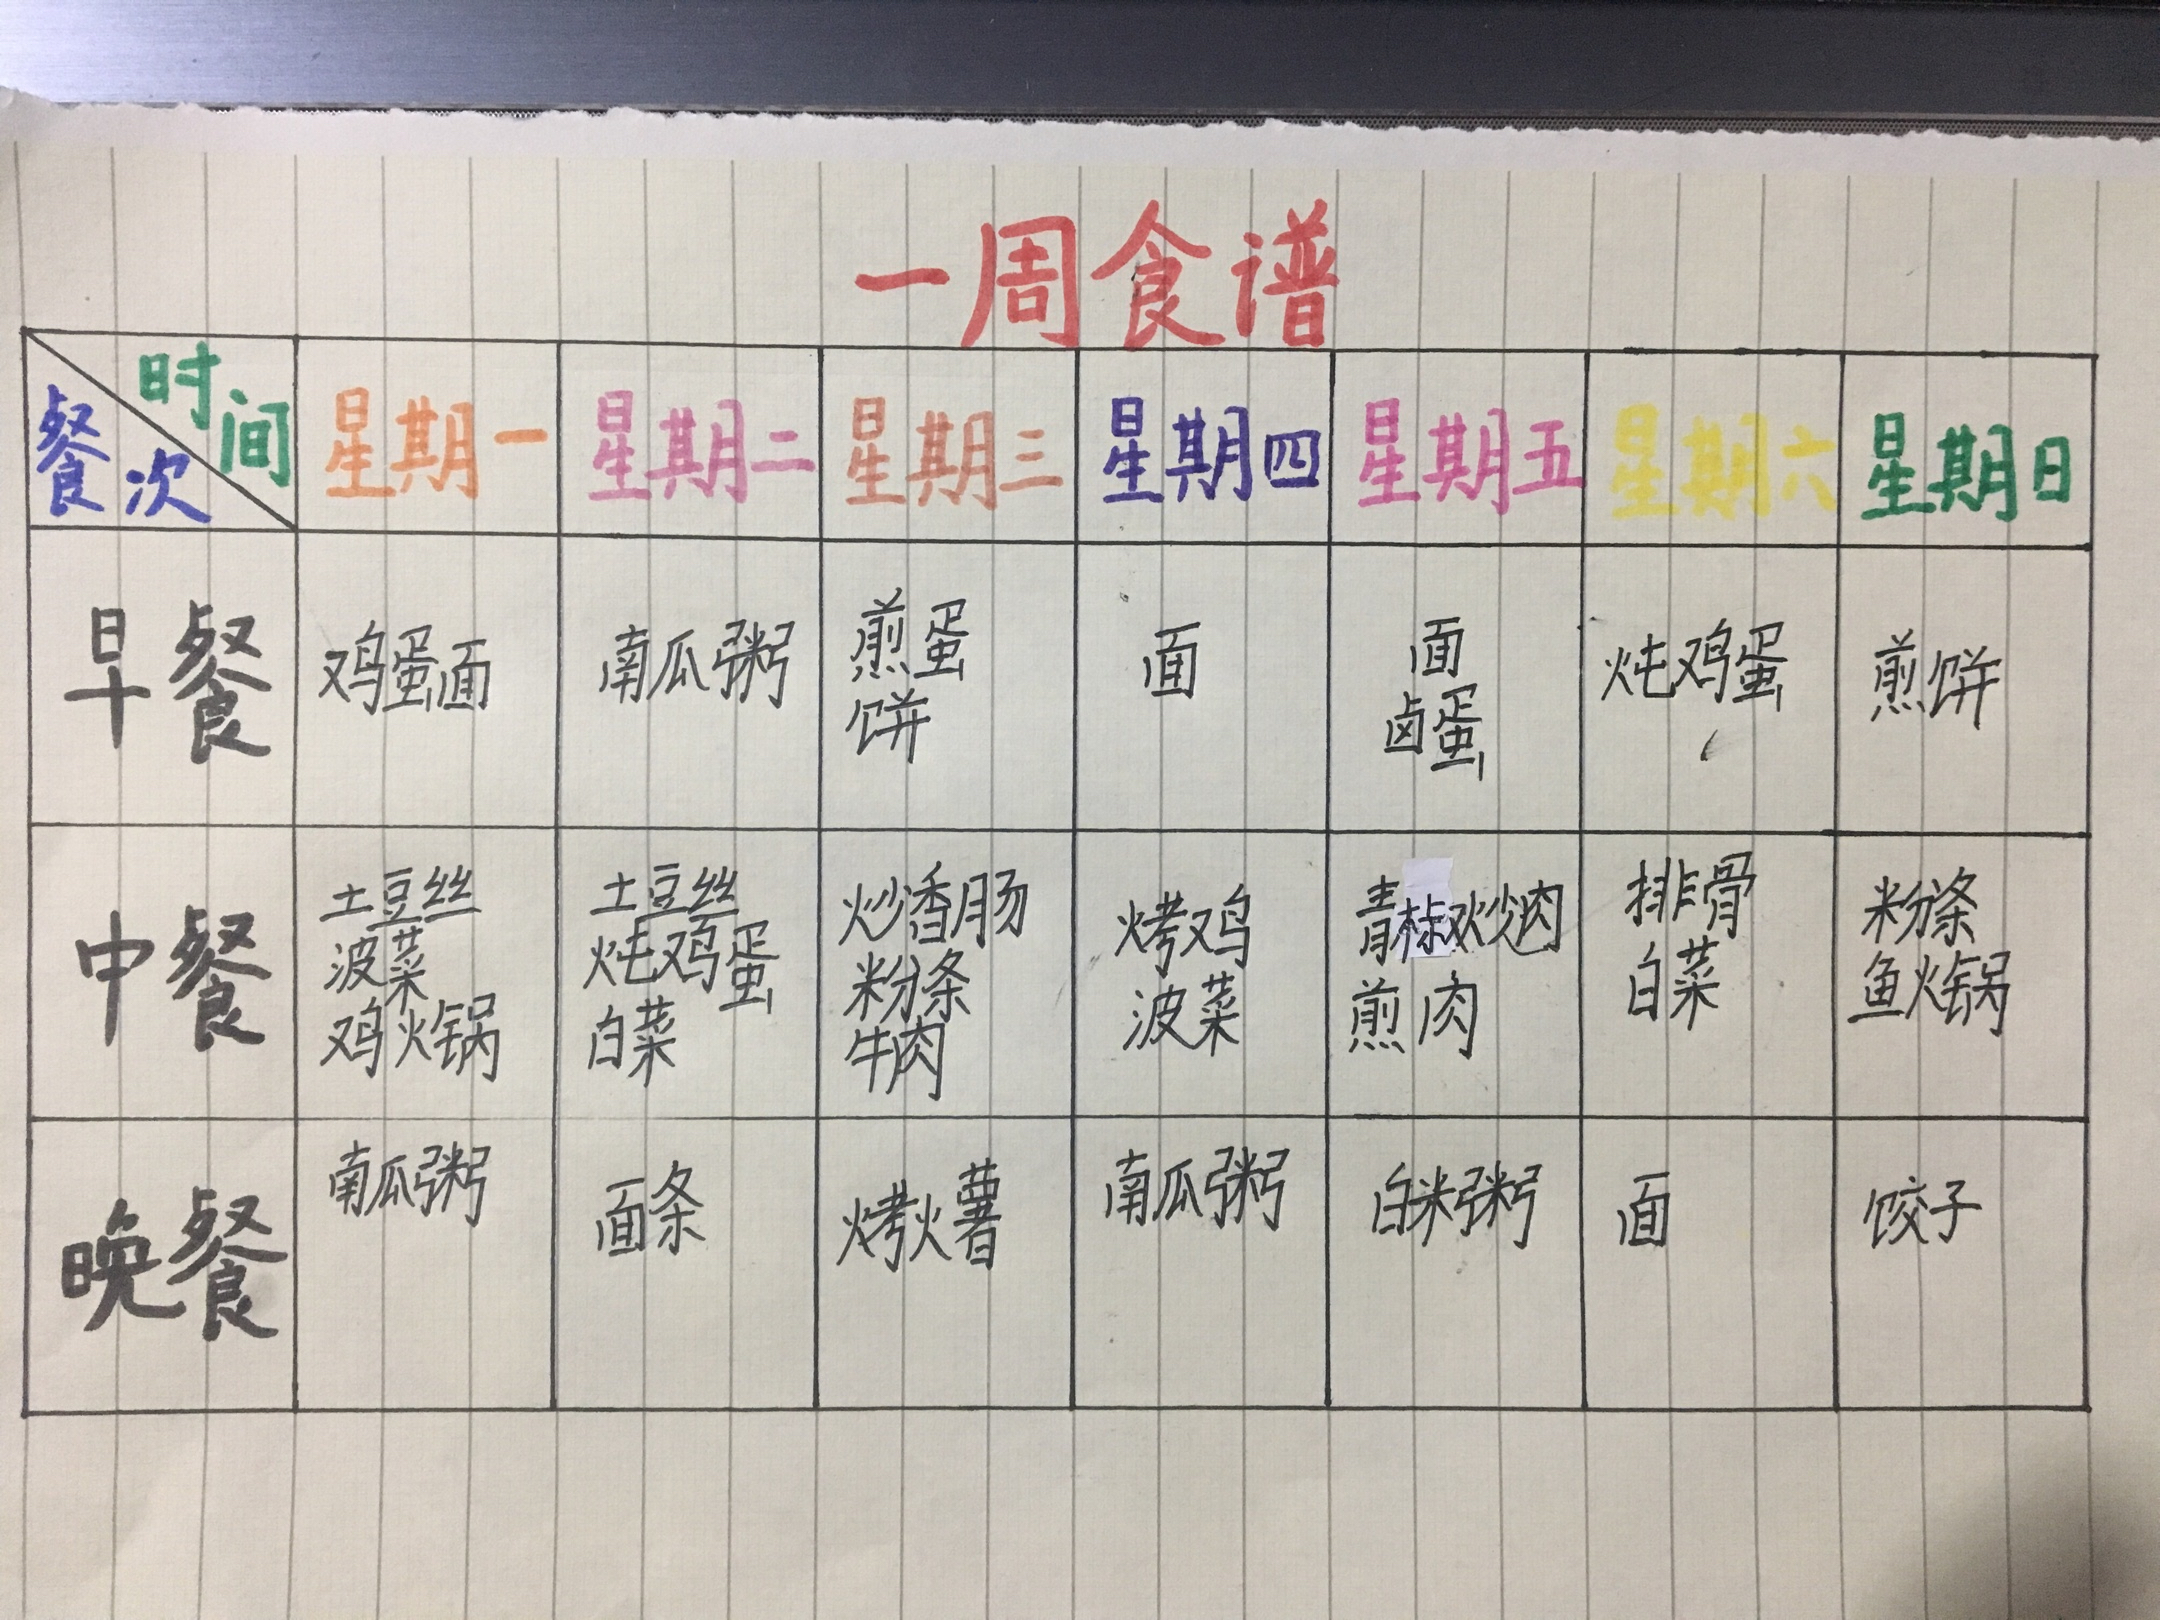 一周食谱
时间
餐次
星期一 星期二 星期三 星期四 星期五 星期六 星期日
早餐
鸡蛋面
南瓜粥
煎蛋
饼
面
面
卤蛋
炖鸡蛋
煎饼
中餐
土豆丝
波菜
鸡火锅
土豆丝
炖鸡蛋
白菜
炒香肠
粉条
牛肉
烤鸡
波菜
青椒炒肉
煎肉
排骨
白菜
粉条
鱼火锅
晚餐
南瓜粥
面条
烤火薯
南瓜粥
白米粥
面
饺子